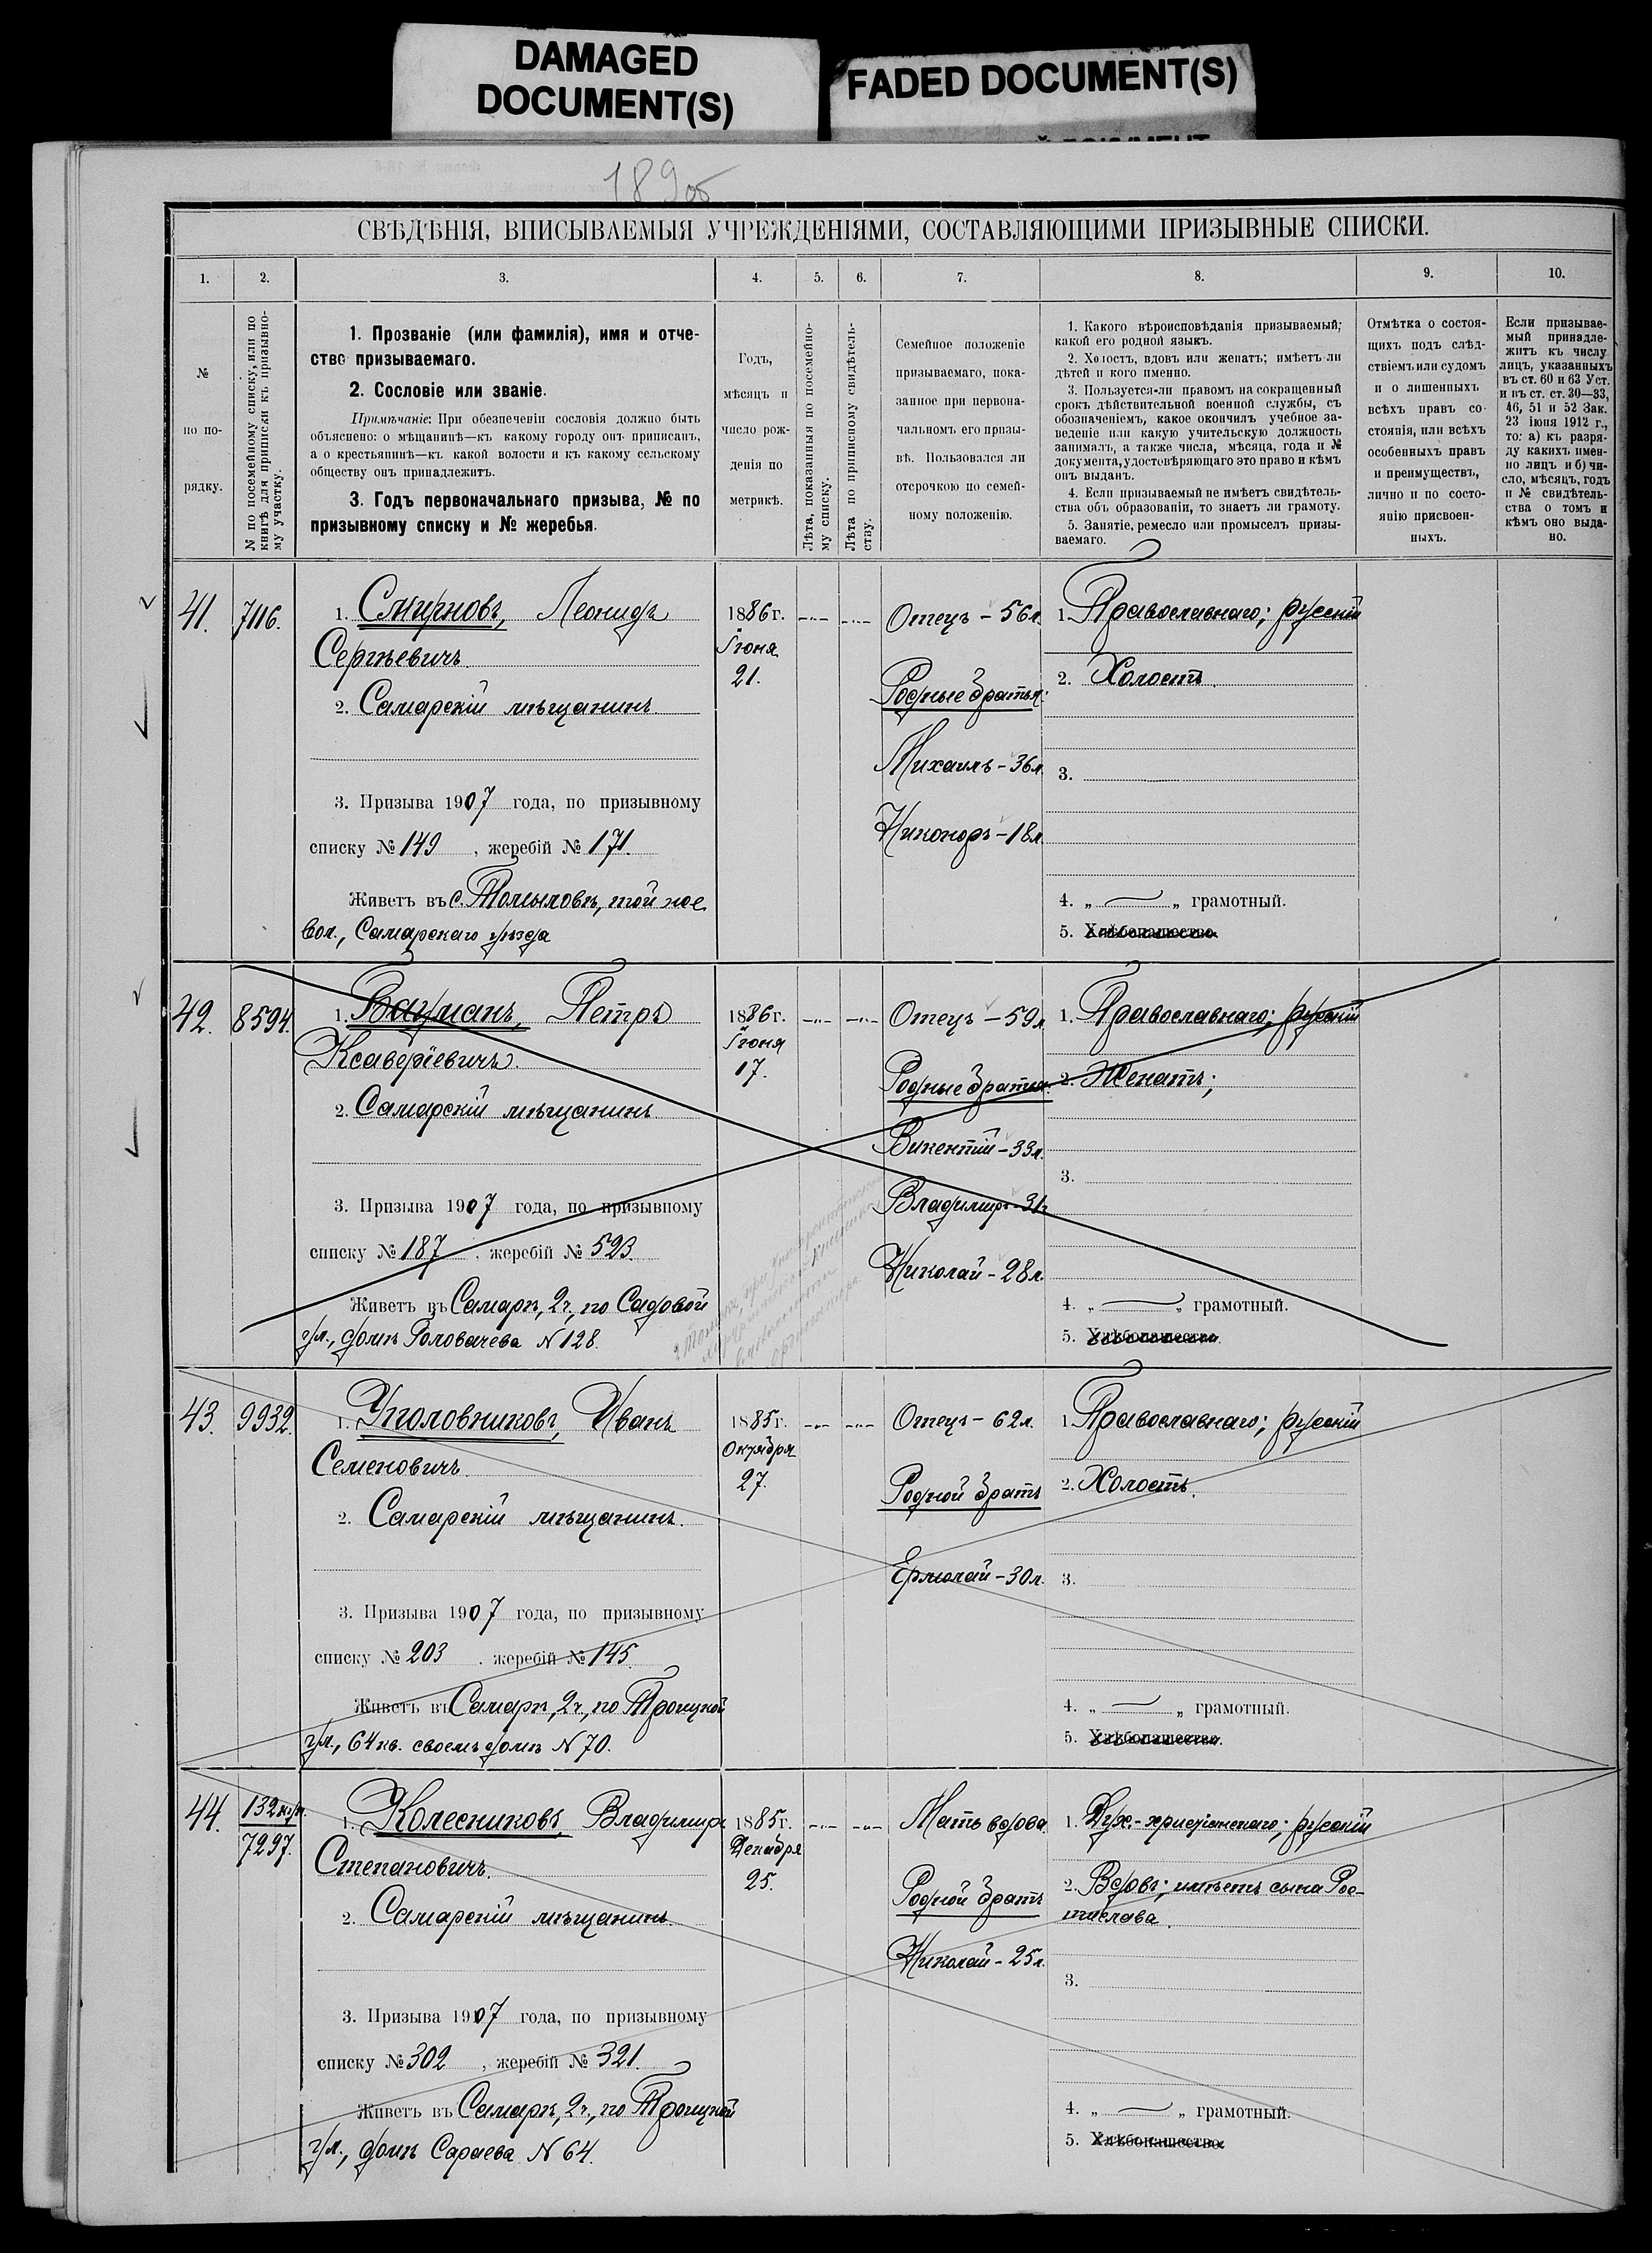 DAMAGED
DOCUMENT(S)
FADED DOCUMENT(S)
189об
СВѢДѢНІЯ, ВПИСЫВАЕМЫЯ УЧРЕЖДЕНІЯМИ, СОСТАВЛЯЮЩИМИ ПРИЗЫВНЫЕ СПИСКИ.
1. 2. 3. 4. 5. 6. 7. 8. 9. 10.
№
по по-
рядку.
№ по посемейному списку, или по
книгѣ для приписки къ призывно-
му участку.
1. Прозваніе (или фамилія), имя и отче-
ство призываемаго.
2. Сословіе или званіе.
Примѣчаніе: При обезпеченіи сословія должно быть
объяснено: о мѣщанинѣ—къ какому городу онъ приписанъ,
а о крестьянинѣ—къ какой волости и къ какому сельскому
обществу онъ принадлежитъ.
3. Годъ первоначальнаго призыва, № по
призывному списку и № жеребья.
Годъ,
мѣсяцъ и
число рож-
денія по
метрикѣ.
Лѣта, показанныя по посемейно-
му списку.
Лѣта по приписному свидѣтель-
ству.
Семейное положеніе
призываемаго, пока-
занное при первона-
чальномъ его призы-
вѣ. Пользовался ли
отсрочкою по семей-
ному положенію.
1. Какого вѣроисповѣданія призываемый;
какой его родной языкъ.
2. Холостъ, вдовъ или женатъ; имѣетъ-ли
дѣтей и кого именно.
3. Пользуется-ли правомъ на сокращенный
срокъ дѣйствительной военной службы, съ
обозначеніемъ, какое окончилъ учебное за-
веденіе или какую учительскую должность
занималъ, а также числа, мѣсяца, года и №
документа, удостовѣряющаго это право и кѣмъ
онъ выданъ.
4. Если призываемый не имѣетъ свидѣтель-
ства объ образованіи, то знаетъ ли грамоту.
5. Занятіе, ремесло или промыселъ призы-
ваемаго.
Отмѣтка о состоя-
щихъ подъ слѣд-
ствіемъ или судомъ
и о лишенныхъ
всѣхъ правъ со-
стоянія, или всѣхъ
особенныхъ правъ
и преимуществъ,
лично и по состо-
янію присвоен-
ныхъ.
Если призывае-
мый принадле-
житъ къ числу
лицъ, указанныхъ
въ ст. 60 и 63 Уст.
и въ ст. ст. 30—33,
46, 51 и 52 Зак.
23 іюня 1912 г.,
то: а) къ разря-
ду какихъ имен-
но лицъ и б) чи-
сло, мѣсяцъ, годъ
и № свидѣтель-
ства о томъ и
кѣмъ оно выда-
но.
41. 7116. 1. Смирновъ, Леонидъ
Сергѣевичъ.
2. Самарскій мѣщанинъ.
3. Призыва 1907 года, по призывному
списку № 149, жеребій № 171.
Живетъ въ с. Томыловѣ, той же
вол., Самарскаго уѣзда
1886 г.
Іюня
21.
Отецъ – 56 л.
Родные братья:
Михаилъ – 36 л.
Никоноръ – 18 л.
1. Православнаго; русскій
2. Холостъ.
3.
4. „ — „ грамотный.
5. Хлѣбопашество.
42. 8594. 1. Бауманъ, Петръ
Ксаверіевичъ.
2. Самарскій мѣщанинъ.
3. Призыва 1907 года, по призывному
списку № 187, жеребій № 523.
Живетъ въ Самарѣ, 2 ч., по Садовой
ул., домѣ Головачева № 128.
1886 г.
Іюня
17.
Отецъ – 59 л.
Родные братья:
Викентій – 33 л.
Владиміръ – 31 г.
Николай – 28 л.
1. Православнаго; русскій
2. Женатъ;
3.
4. „ — „ грамотный.
5. Хлѣбопашество.
43. 9932. 1. Уполовниковъ, Иванъ
Семеновичъ.
2. Самарскій мѣщанинъ.
3. Призыва 1907 года, по призывному
списку № 203, жеребій № 145.
Живетъ въ Самарѣ, 2 ч., по Троицкой
ул., 64 кв. своемъ домѣ № 70.
1885 г.
Октября
27.
Отецъ – 62 л.
Родной братъ
Ермолай – 30 л.
1. Православнаго; русскій
2. Холостъ.
3.
4. „ — „ грамотный.
5. Хлѣбопашество.
44. 132 куп.
7297.
1. Колесниковъ, Владиміръ
Степановичъ.
2. Самарскій мѣщанинъ.
3. Призыва 1907 года, по призывному
списку № 302, жеребій № 321.
Живетъ въ Самарѣ, 2 ч., по Троицкой
ул., домѣ Сараева № 64.
1885 г.
Декабря
25.
Мать вдова.
Родной братъ
Николай – 25 л.
1. Дух.-христіанскаго; русскій
2. Вдовъ; имѣетъ сына Рос-
тислава.
3.
4. „ — „ грамотный.
5. Хлѣбопашество.